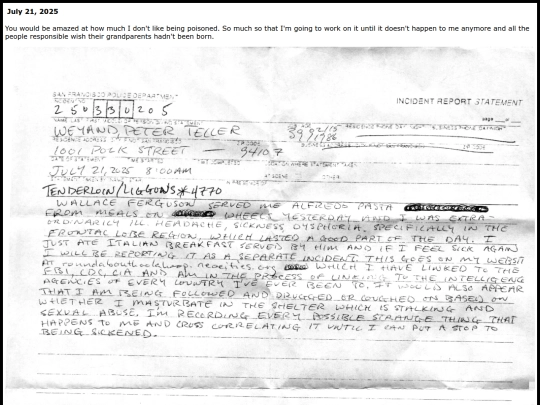 July 21, 2025
You would be amazed at how much I don't like being poisoned. So much so that I'm going to work on it until it doesn't happen to me anymore and all the
people responsible wish their grandparents hadn't been born.
SAN FRANCISCO POLICE DEPARTMENT
INCIDENT REPORT STATEMENT
250330205
WEYAND PETER TELLER
1001 POLK STREET — 94107
JULY 21, 2025 8:00AM
TENDERLOIN/LIGGONS #4770
WALLACE FERGUSON SERVED ME ALFREDO PASTA
FROM MEALS ON WHEELS YESTERDAY AND I WAS EXTRA-
ORDINARILY ILL HEADACHE, SICKNESS DYSPHORIA, SPECIFICALLY IN THE
FRONTAL LOBE REGION, WHICH LASTED A GOOD PART OF THE DAY. I
JUST ATE ITALIAN BREAKFAST SERVED BY HIM AND I FEEL SICK AGAIN
I WILL BE REPORTING IT AS A SEPARATE INCIDENT. THIS GOES ON MY WEBSIT
AT neocities.org WHICH I HAVE LINKED TO THE
FBI, CDC, CIA AND AM IN THE PROCESS OF LINKING TO THE INTELLIGENC
AGENCIES OF EVERY COUNTRY I'VE EVER BEEN TO, IT WOULD ALSO APPEAR
THAT I AM BEING FOLLOWED AND DRUGGED OR COUGHED ON BASED ON
WHETHER I MASTURBATE IN THE SHELTER WHICH IS STALKING AND
SEXUAL ABUSE, I'M RECORDING EVERY POSSIBLE STRANGE THING THAT
HAPPENS TO ME AND CROSS CORRELATING IT UNTIL I CAN PUT A STOP TO
BEING SICKENED.